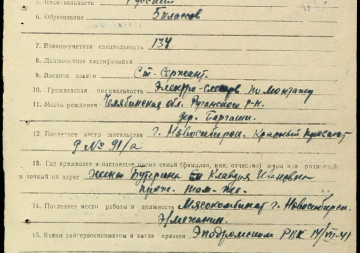 5. Национальность Русский
6. Образование 5 классов
7. Военно-учетная специальность 134
8. Должностная квалификация
9. Военное звание Ст. Сержант.
10. Гражданская специальность Электро-слесарь по монтажу
11. Место рождения Челябинская обл. р-н.
дер.
12. Последнее место жительства г. Новосибирск. Красный
д № 91/а
13. Где проживает и настоящее время семья (фамилия, имя, отчество) жены или родителей
и точный их адрес Жена Клавдия Ивановна
прож. там-же.
14. Последнее место работы и должность Мясокомбинат г. Новосибирск.
Э/механик.
15. Каким райгорвоенкоматом и когда призван РВК